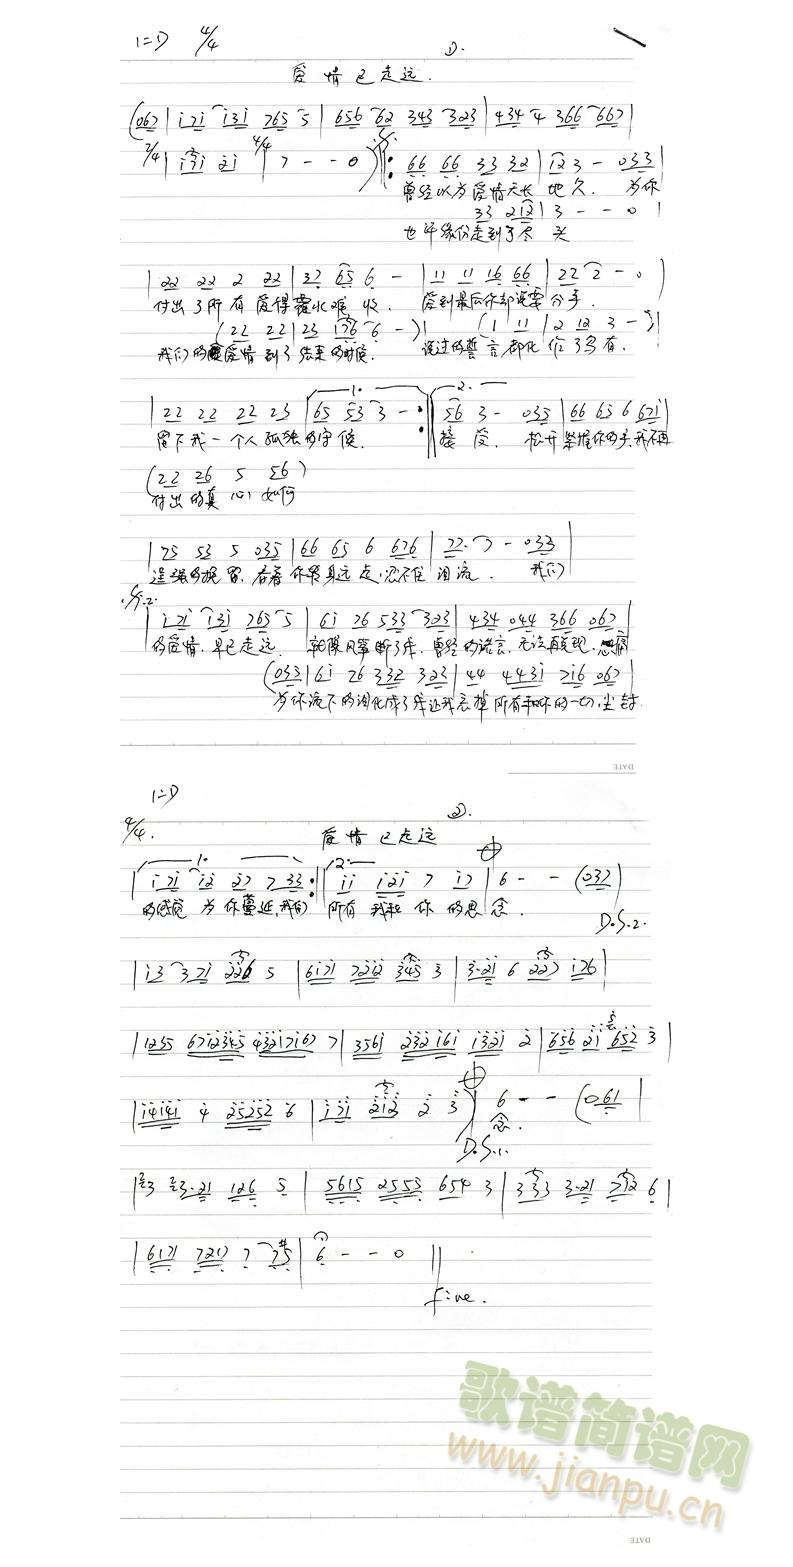 1=D 4/4 ①.
爱情已走远.
(067|i7i i3i 765 5|656 62 343 323|434 4 366 667|
2/4|i7i 2i|4/4 7 - - 0)‖: 66 66 33 32|123 - 033|
曾经以为爱情天长地久. 为你
33 212|3 - - 0|
也许缘份走到了尽头
|22 22 2 22|37 65 6 -|11 11 16 66|22 2 - 0|
付出了所有爱得覆水难收. 爱到最后你却说要分手.
(22 22|23 176 6 -)| (1 11|2 12 3 -)|
我们的爱情到了结束的时候. 说过的誓言都化作了乌有.
|22 22 22 23|1. 65 53 3 - :‖2. 56 3 - 035|66 65 6 671|
留下我一个人孤独的守候. 接受. 松开紧握你的手我不再
(22 26 5 56)
付出的真心如何
|75 53 5 035|66 65 6 676|77. 7 - 033|
逞强的挽留.看着你转身远走,忍不住泪流. 我们
.S.2.
|i7i i3i 765 5|6i 76 533 323|434 044 366 067|
的爱情.早已走远. 就像风筝断了线.曾经的诺言.无法再兑现.悲痛
(033|6i 76 332 323|44 443i 7i6 067|
为你流下的泪化成了线让我忘掉所有和你的一切.尘封
DATE
1=D
4/4. ②.
爱情已走远
1. |i7i i2 27 7 33:‖2. ii i2i 7 i7|6 - - (037|
的感觉 为你蔓延,我们 所有 我和 你 的思念.
D.S.2.
|i3 37i 226 5|6i7i 722 345 3|3·2i 6 227 i76|
|1235 6712345 43217167 7|356i 232161 i32i 2|656 2i 652 3|
|i4i4i 4 25252 6|i7i 2i2 2 3)|6 - - (061|
念.
D.S.1.
|3 3·21 126 5|5615 2553 654 3|333 3·21 712 6|
|6171 7217 7 7#5|6 - - 0‖
fine.
歌谱简谱网
www.jianpu.cn
DATE